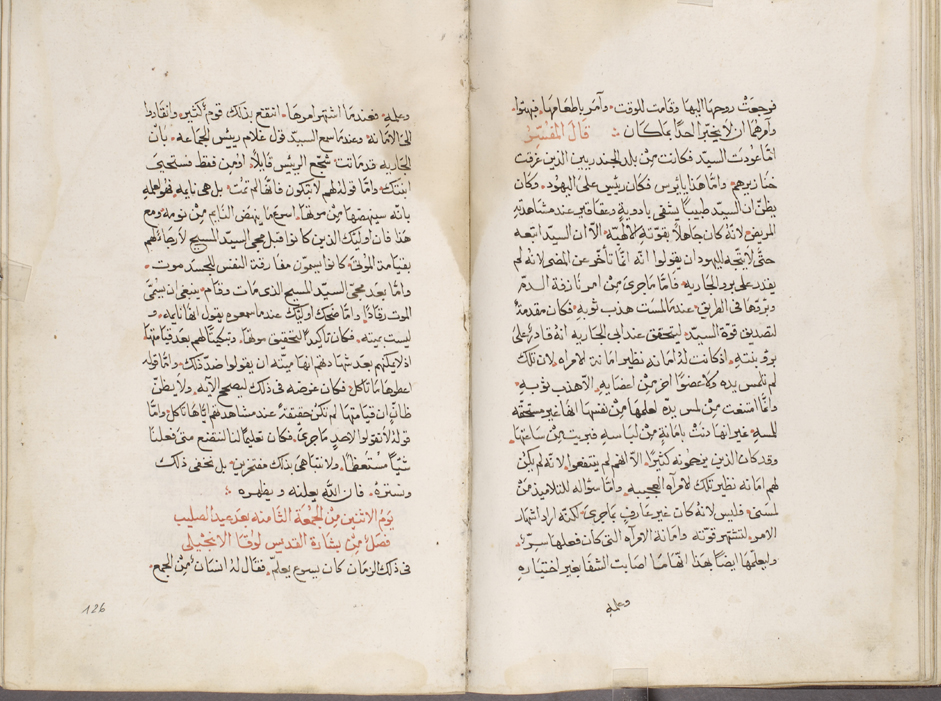 فرجعَتْ روحها اليها وقامت للوقت. وآمر باطعامها. فبهتوا.
وآمرهما ان لا يخبّرا احدًا بما كان ∴ قال المُفسّر
انما عودت السيّد فكانت مِنْ بلد الجندريين الذين غرقت
خنازيرهم. وامّا هذا يايُوس فكان رئيس على اليهُود. وكان
يظنّ ان السيّد طبيبًا يشفى بادوية وعقاقير عند مشاهدته
المريض. لانه كان جاهلاً بقوّته الالهيّة. الّا ان السيّد اتبعه
حتَّى لا يتّجه لليهود ان يقولوا انه انمّا تأخّر عن المضى لانه لم
يقدر على برو الجاريه. فامّا ما جرى مِنْ امر نازفة الــدمّ
وبروّها فى الطريق. عندما لمست هدب ثوبه. فكان مقدمة
لتصديق قوّة السيّد. ليتحقق عند ابى الجاريه انه قادرٌ على
برو بنته. اذ كانت لهُ امانه نظير امانة الامراه. لان تلك
لم تلمس يده ولا عضوًا آخر مِنْ اعضايه. الا هدب ثوبه.
وامّا امتنعت مِنْ لمس يدّه لعلمها مِنْ نفسها انها غير مستحقّه
للمسه. غير انها دنَتْ بامانةٍ مِنْ لباسه فبريت مِنْ ساعتها.
وقد كان الذين يزحمونه كثيرًا. الّا انهم لم ينتفعوا. لانه لم يكُن
لهم امانه نظير تلك الامرآه العجيبه. وامّا سؤاله للتلاميذ مَنْ
لمسنى. فليس لانهُ كان غير عارفٍ بما جرى. لكنّه اراد اشهار
الامر. لتشتهر قوّته وامانة الامرآه التى كان فعلها سرّ.
وليعلمها ايضًا بهذا انها ما اصابت الشفا بغير اختياره
وعلمه
وعلمه. فعندما اشتهر امرها. انتفع بذلك قوم كثير. وانقادوا
الى الامانة. وعندما سمع السيّد قول غلام رييس الجماعه. بانّ
الجاريه قد ماتت. شجّع الريّس قايلًا. اومن فقط فستحيى
ابنتك. وامّا قوله لهم لا تبكون فانها لم تمُت. بل هى نايمه. فهو اعلمهم
بانه سينهضها مِنْ موتها. اسرع ما ينهض النايم مِنْ نومه. ومع
هذا فان اوليك الذين كانوا قبل مجى السيّد المسيح لا رجاء لهم
بقيامة الموتى. كانوا يسمّون مفارقة النفس للجسد موت.
وامّا بعد مجئ السيد المسيح الذى مات وقام. ينبغى ان يُسمَّى
الموت رقادًا. وامّا ضحك اوليك عندما سمعوه يقول انها نايمه. و
ليست ميته. فكان تاكيدًا لتحقيق موتها. وتبكيتًا لهم بعد قيامتها.
اذ لا يمكنهم بعد شهادتهم انها ميته ان يقولوا ضدّ ذلك. وامّا قوله
اعطوها ما تاكل. فكان غرضه فى ذلك ليصحح الآيه. ولا يظنّ
ظانٌ ان قيامتها لم تكُن حقيقة. عند مشاهدتهم ايّاها تاكل. وامّا
قولهُ لا تقولوا لاحدٍ ما جرى. فكان تعليمًا لنا لنتضع متى فعلنا
شيًا مُستعظمًا. ولا نتباهى بذلك مفتخرين. بل نخفى ذلك
ونسترهُ. فان الله يعلنه ويظهره ∴
يَومُ الاثنين مِنْ الجُمعَة الثامنه بعد عيد الصليب
فصلٌ مِنْ بشارة القديس لوقا الانجيلى
فى ذلك الزمان كان يسوع يعلّم. فقال لهُ انسانٌ مِنْ الجمع.
126